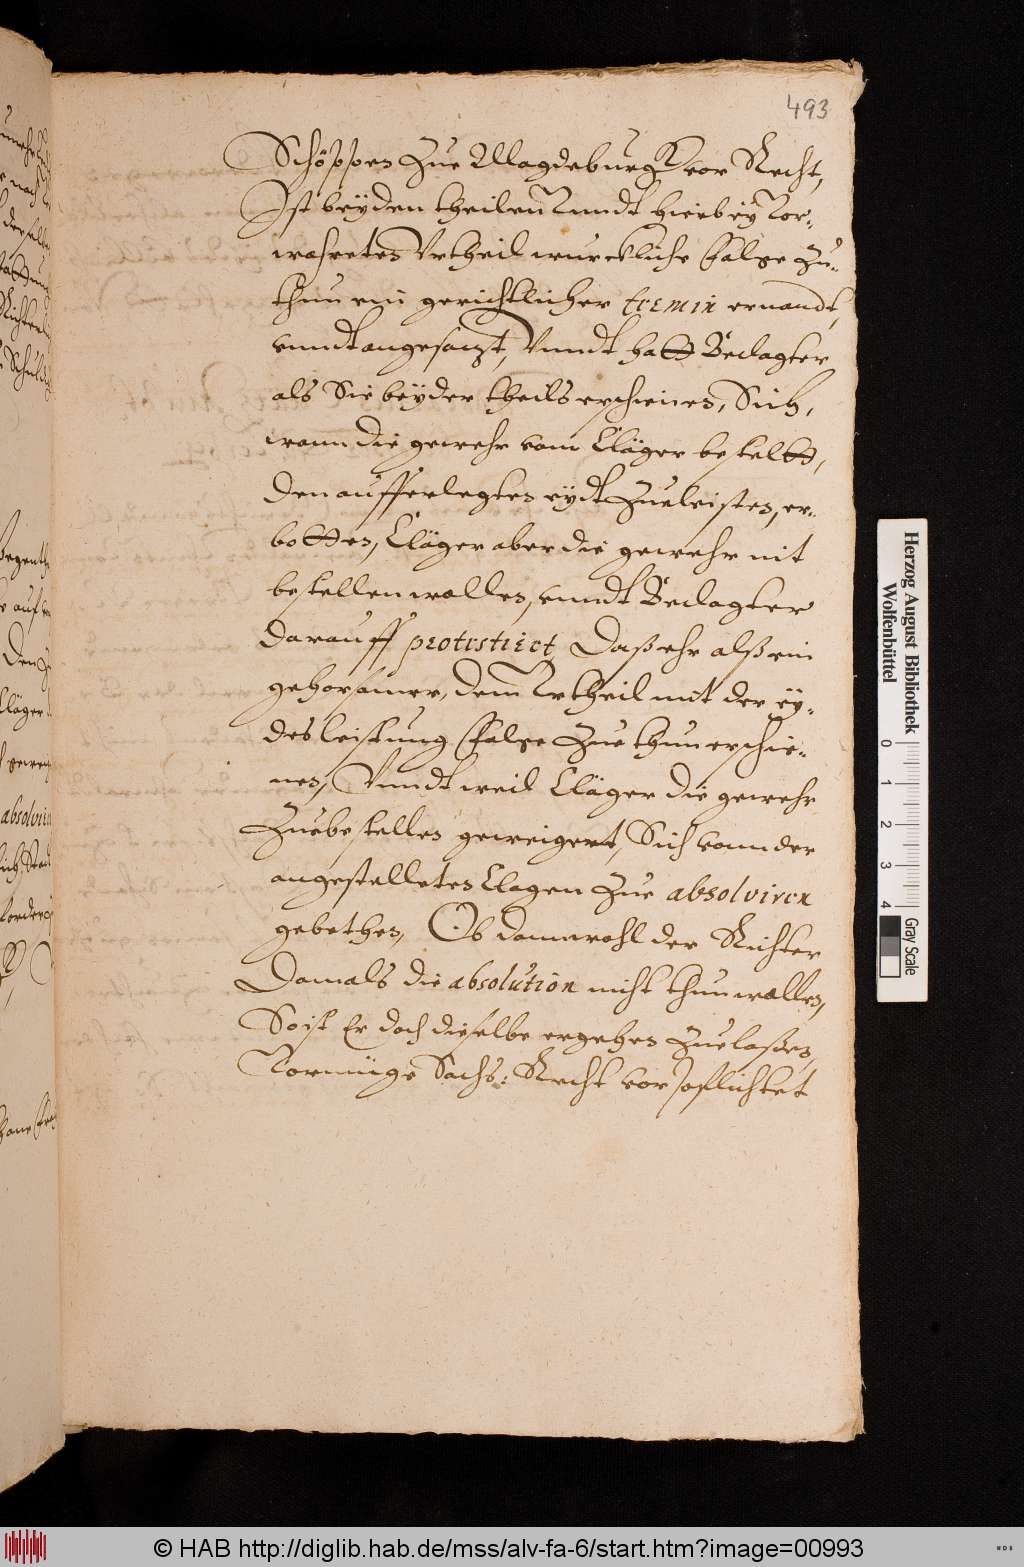 493
Schöppen Zue Magdeburgk vor Recht,
Ist beÿden theilen Vnndt hierbeÿ Vor-
wahretes Vrtheil wurckliche folge Zu-
thun ein gerichtlicher termin ernandt,
vnndt angesatzt, Vnndt hatt Beclagter
als Sie beÿder theils erschienen, Sich,
wann die gewehr vom Cläger bestelt,
den aufferlegten eÿdt Zueleisten, er-
botten, Cläger aber die gewehr nit
bestellen wollen, vnndt Beclagter
darauff protestiret, Daß ehr alß ein
gehorsamer, dem Vrtheil mit der eÿ-
desleistung folge Zue thun erschie-
nen, Vnndt weil Cläger die gewehr
Zuebestellen geweigert, Sich vonn der
angestelleten Clagen Zue absolviren
gebethen, Ob dannwohl der Richter
Damals die absolution nicht thun wollen,
So ist Er doch dieselbe ergehen Zuelaßen,
Vormüge Sachs: Recht vorpflichtet
absolvi
Cläger
Herzog August Bibliothek
Wolfenbüttel
0 1 2 3 4
Gray Scale
© HAB http://diglib.hab.de/mss/alv-fa-6/start.htm?image=00993
WDB